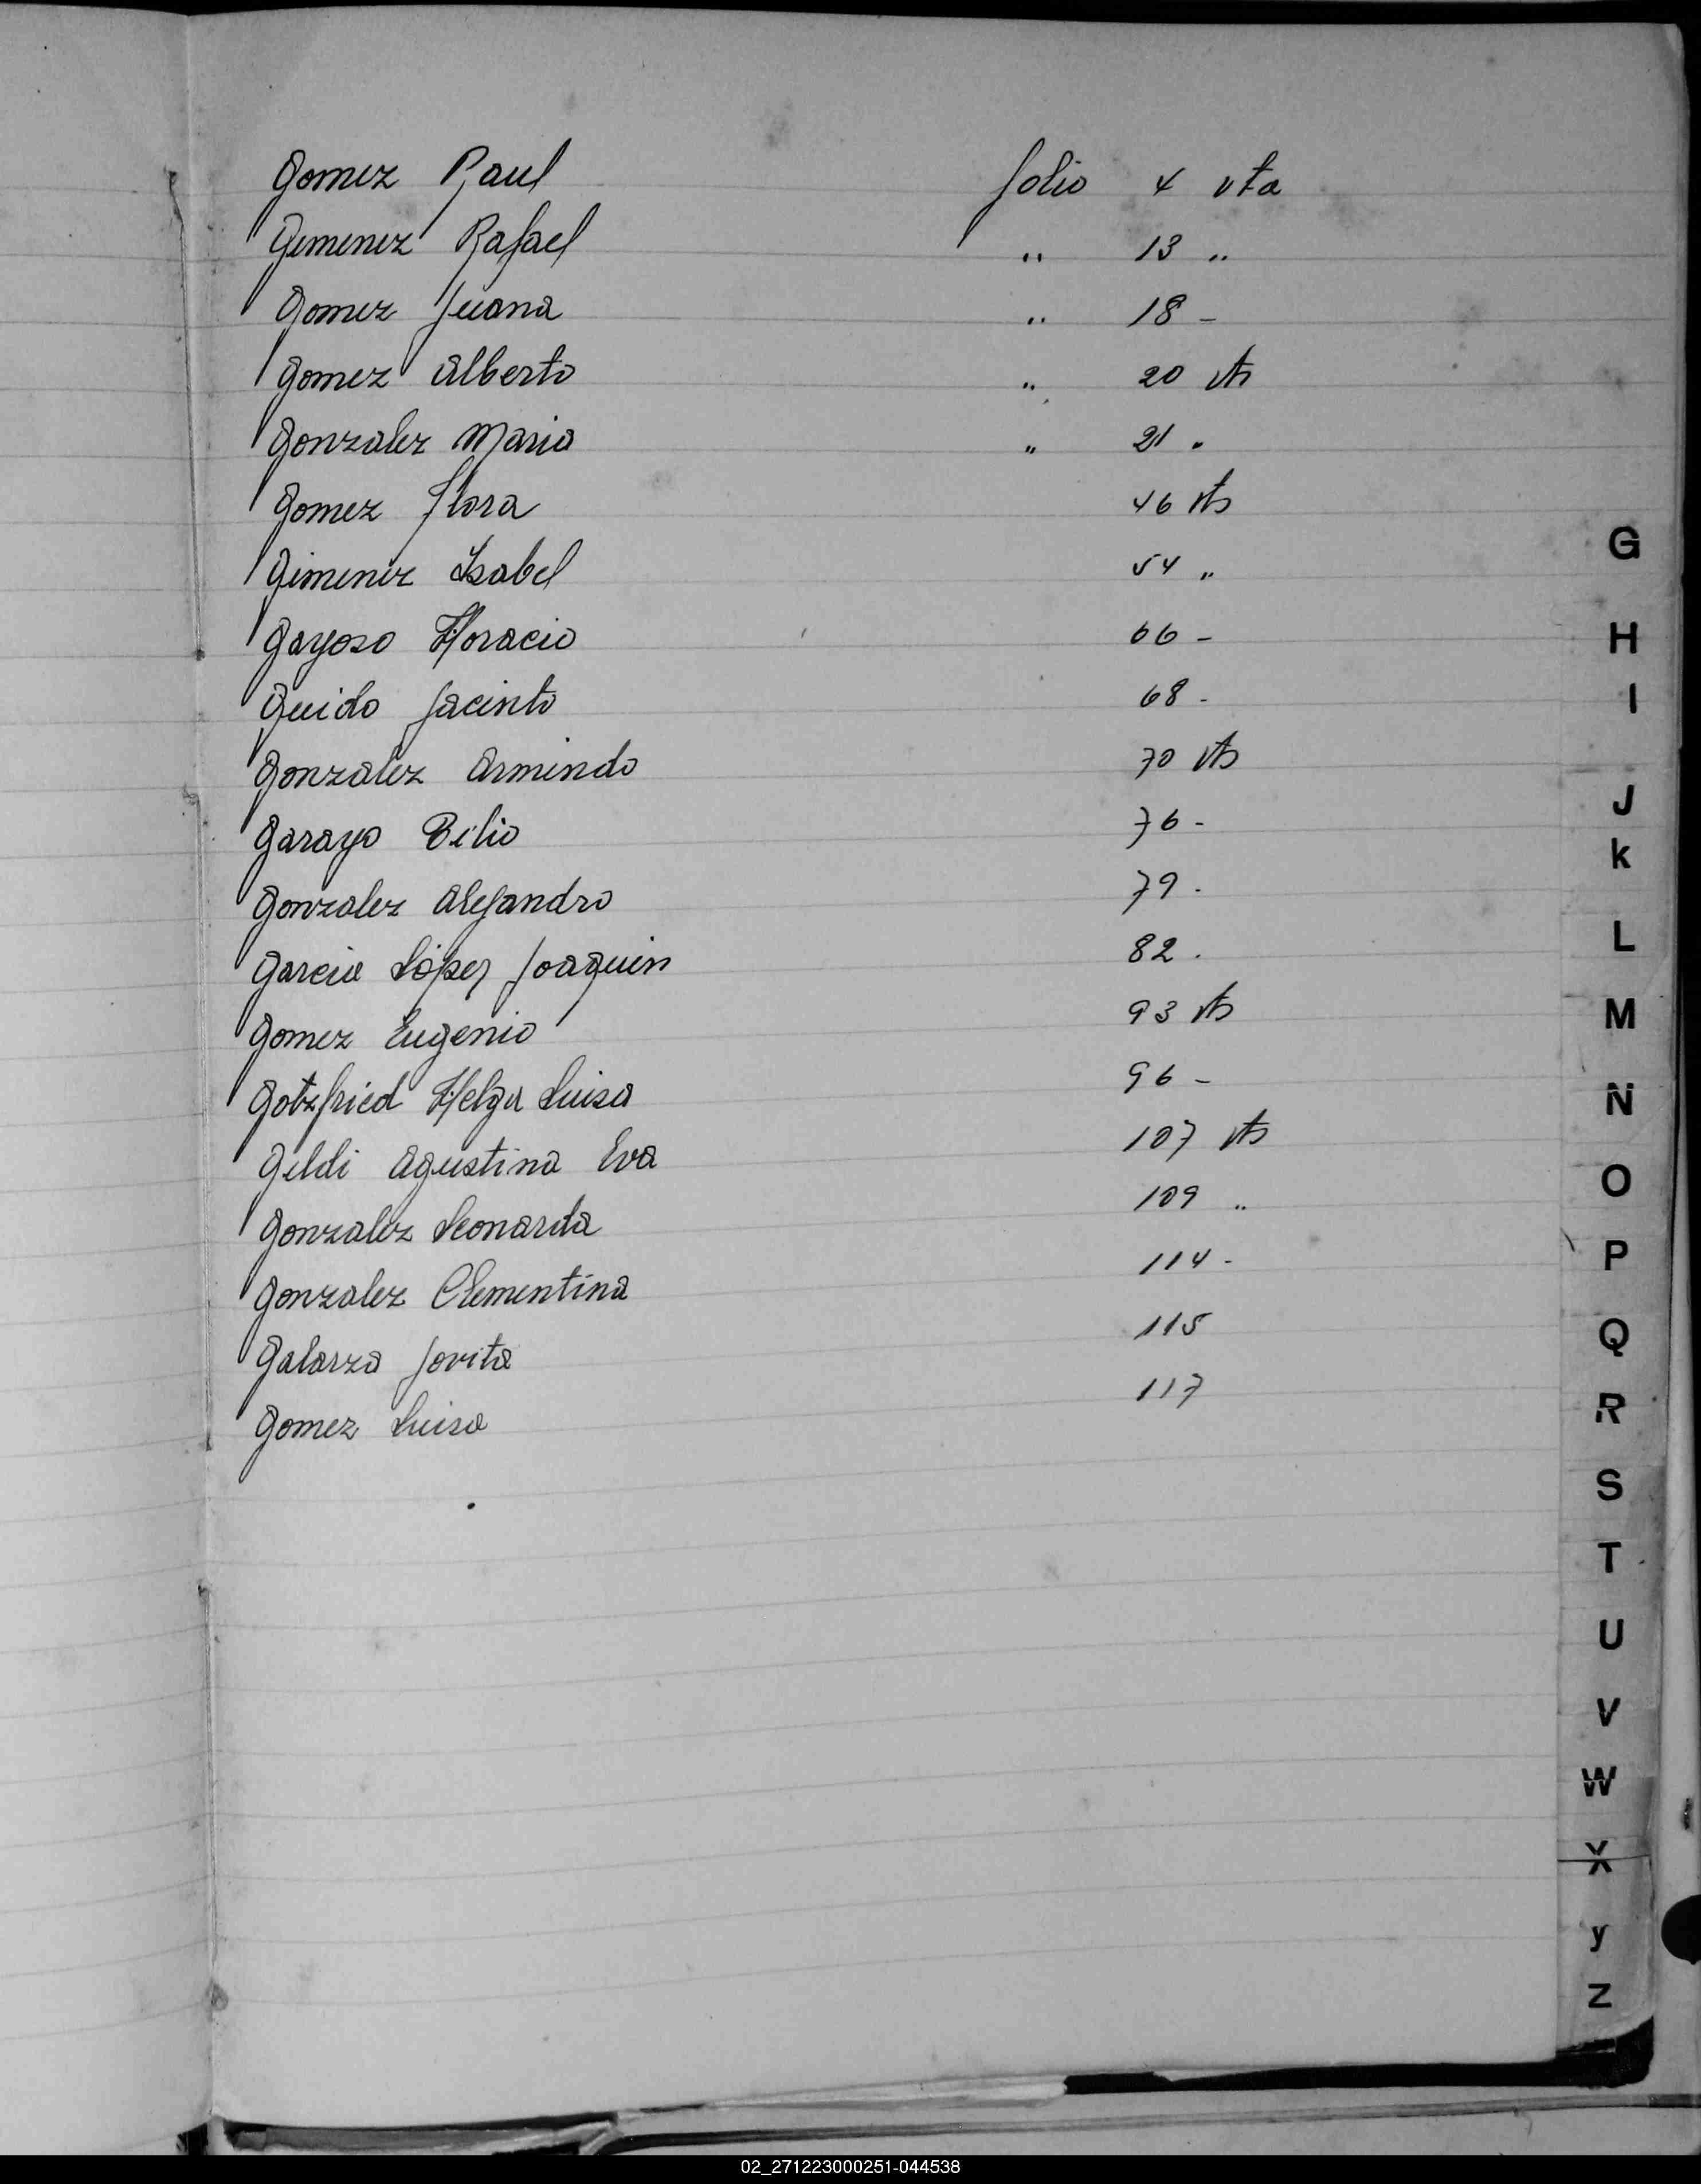 Gomez Raul folio 4 vta
Gimenez Rafael " 13 "
Gomez Juana " 18 -
Gomez Alberto " 20 vta
Gonzalez Maria " 21 "
Gomez Flora 46 vta
Gimenez Isabel 54 "
Gayoso Horacio 66 -
Guido Jacinto 68 -
Gonzalez Armindo 70 vta
Garayo 76 -
Gonzalez Alejandro 79 -
Garcia López Joaquin 82 -
Gomez Eugenio 93 vta
Gotzfried Helga Luisa 96 -
Geldi Agustina Eva 107 vta
Gonzalez Leonarda 109 "
Gonzalez Clementina 114 -
Galarza Jovita 115
Gomez Luisa 117
G
H
I
J
k
L
M
N
O
P
Q
R
S
T
U
V
W
X
y
Z
02_271223000251-044538